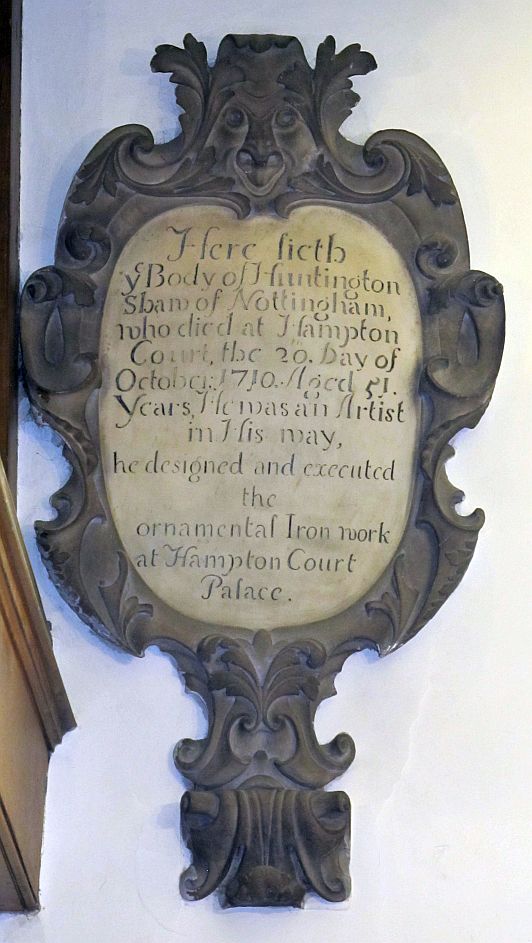 Here lieth
yͤ Body of Huntington
Shaw of Nottingham,
who died at Hampton
Court, the 20. Day of
October. 1710. Aged 51.
Years, He was an Artist
in His way,
he designed and executed
the
ornamental Iron work
at Hampton Court
Palace.